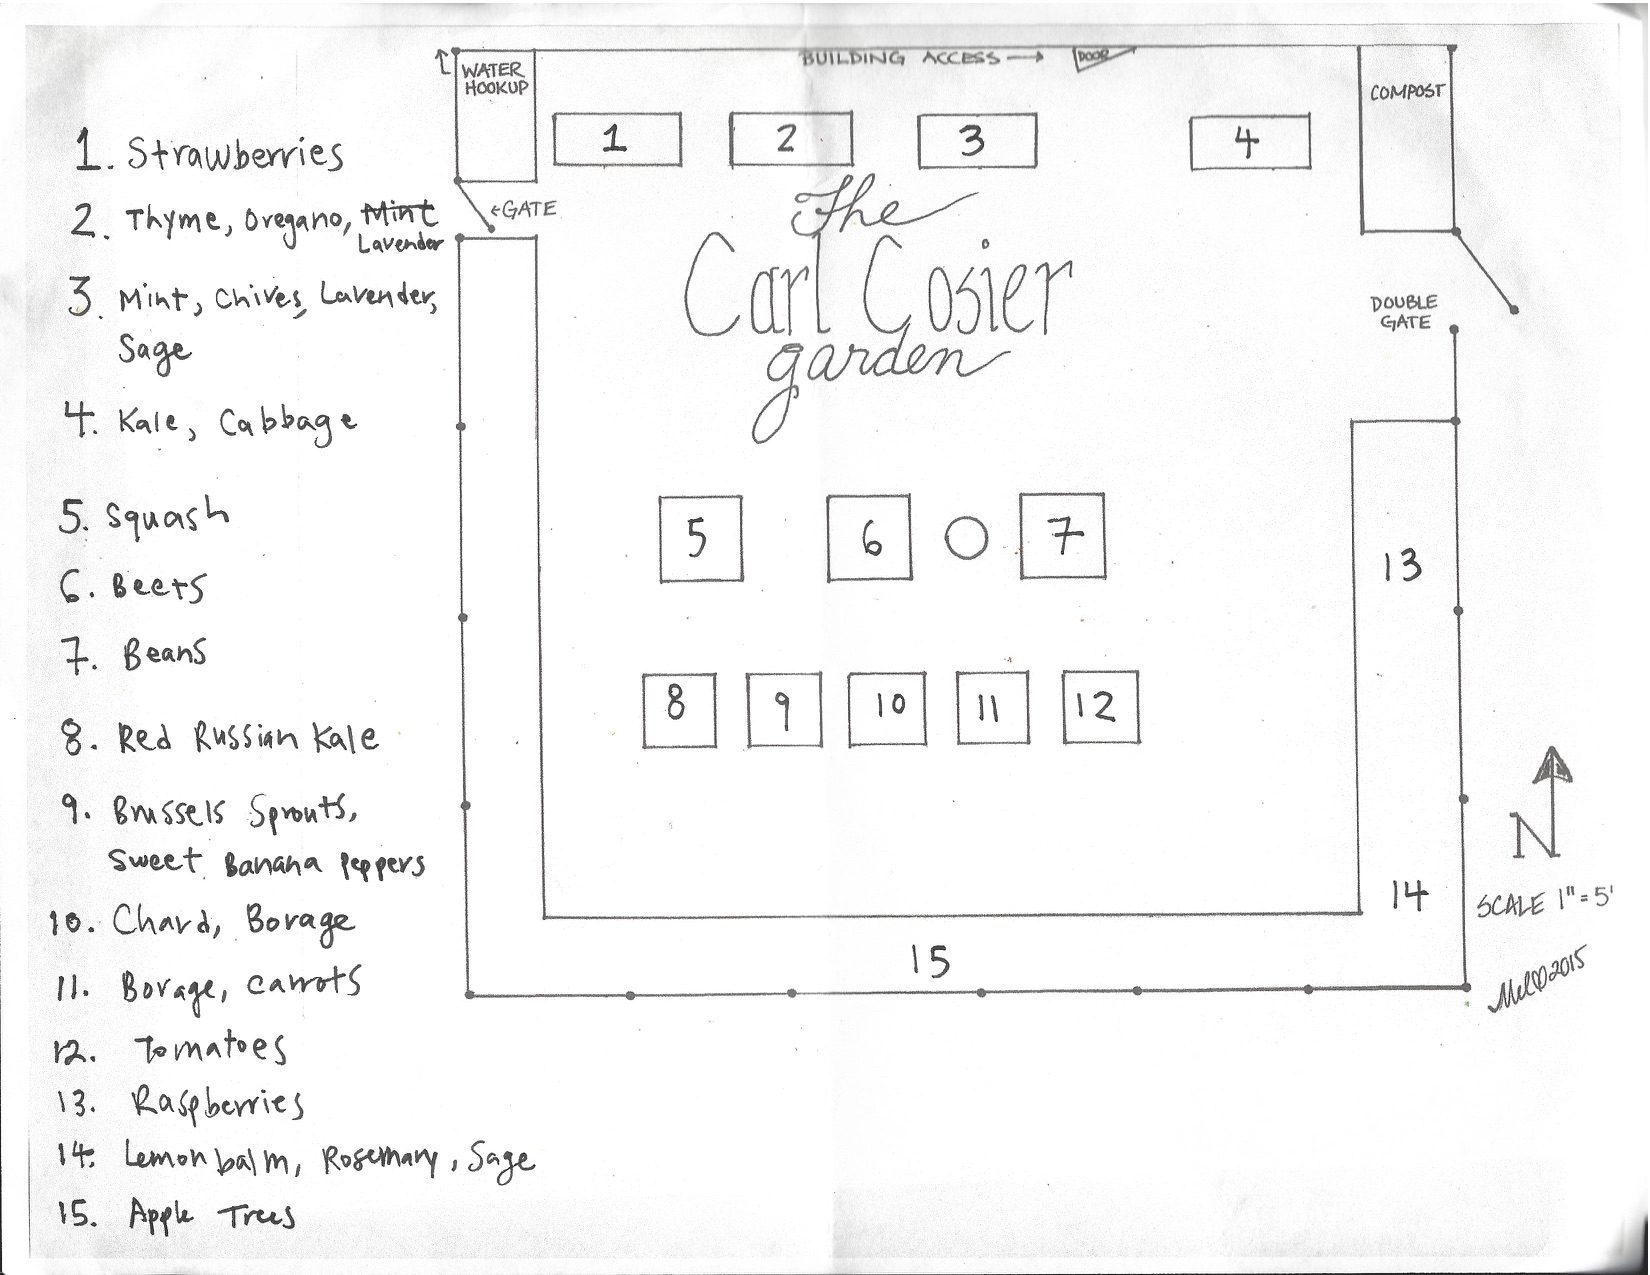 ↑ WATER
HOOKUP
BUILDING ACCESS → DOOR
COMPOST
1
2
3
4
←GATE
The
Carl Cosier
garden
DOUBLE
GATE
5
6
7
13
8
9
10
11
12
14
15
N
SCALE 1"=5'
2015
1. Strawberries
2. Thyme, Oregano, Mint
Lavender
3. Mint, Chives, Lavender,
Sage
4. Kale, Cabbage
5. Squash
6. Beets
7. Beans
8. Red Russian Kale
9. Brussels Sprouts,
Sweet Banana Peppers
10. Chard, Borage
11. Borage, Carrots
12. Tomatoes
13. Raspberries
14. Lemon balm, Rosemary, Sage
15. Apple Trees